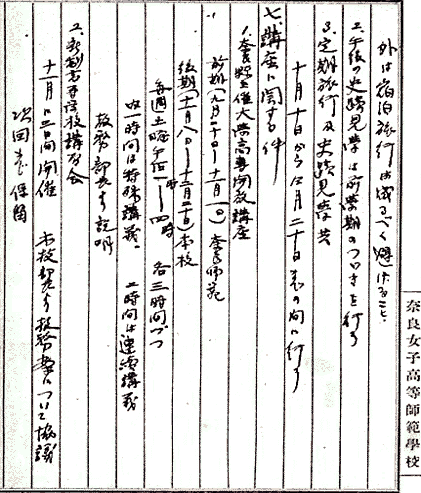 外は宿泊旅行は成るべく避けること
2.午後の史蹟見学は前学期のつゞきを行う
3.定期旅行及史蹟見学共
十月十日から同月二十日までの間に行う
七、講座に関する件
1.奈良県主催大学高専開放講座
前期(九月二十日〜十一月一日)奈良師範
後期(十一月八日〜十二月二十日)本校
毎週土曜午后一時〜四時 各三時間づつ
内一時間は特殊講義 二時間は連続講義
教務部長より説明
2.新制高等学校講習会
十一月に三日間開催 本校 より教務 について協議
次回まで保留
奈良女子高等師範學校